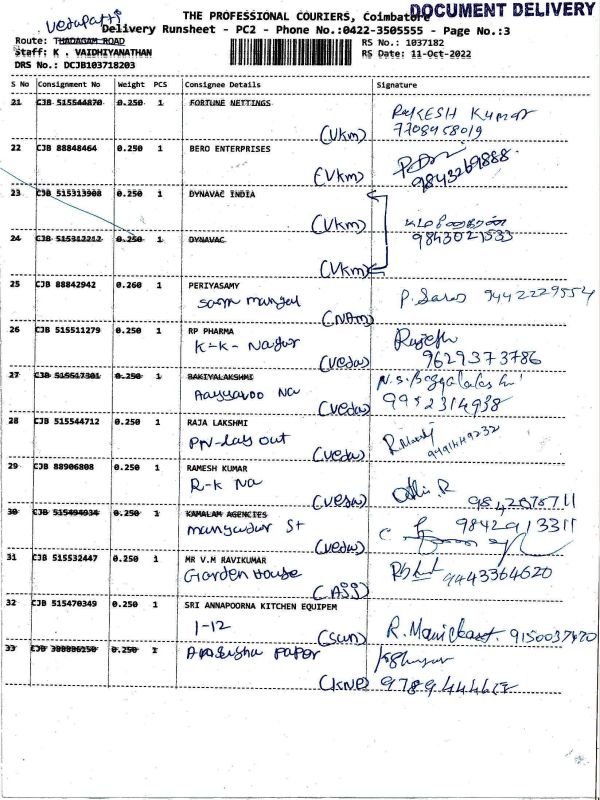 DOCUMENT DELIVERY
THE PROFESSIONAL COURIERS, Coimbatore
Vedapatti
Delivery Runsheet - PC2 - Phone No.:0422-3505555 - Page No.:3
Route: THADAGAM ROAD
RS No.: 1037182
Staff: K . VAIDHIYANATHAN
RS Date: 11-Oct-2022
DRS No.: DCJB103718203
S No Consignment No Weight PCS Consignee Details Signature
21 CJB 515544870 0.250 1 FORTUNE NETTINGS RAKESH Kumar
(Vkm) 7708958019
22 CJB 88848464 0.250 1 BERO ENTERPRISES
(Vkm) 9843269888
23 CJB 515313908 0.250 1 DYNAVAC INDIA
(Vkm)
9843021533
24 CJB 515312212 0.250 1 DYNAVAC
(Vkm)
25 CJB 88842942 0.260 1 PERIYASAMY
P. Saras 9442229554
(NAm)
26 CJB 515511279 0.250 1 RP PHARMA Rajesh
K-K- Nagar
(Veda) 9629373786
27 CJB 515517301 0.250 1 BAKIYALAKSHMI
(Veda) 9952314938
28 CJB 515544712 0.250 1 RAJA LAKSHMI
PN-lay out
(Veda)
29 CJB 88906808 0.250 1 RAMESH KUMAR
R-K Na
(Veda) 9842075711
30 CJB 515494934 0.250 1 KAMALAM AGENCIES 9842913311
St
(Veda)
31 CJB 515532447 0.250 1 MR V.M RAVIKUMAR
Garden House 9443364620
32 CJB 515470349 0.250 1 SRI ANNAPOORNA KITCHEN EQUIPEM
1-12
(sun) R. Manickam 9150037470
33 0.250 1 paper
(KNE)